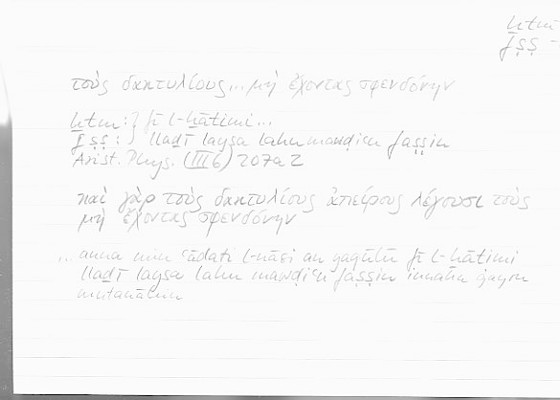 ḫtm
fṣṣ
τοὺς δακτυλίους... μὴ ἔχοντας σφενδόνην
ḫtm: } fī l-ḫātimi...
fṣṣ: } llaḏī laysa lahu mawḍiʿu faṣṣin
Arist. Phys. (III 6) 207a2
καὶ γὰρ τοὺς δακτυλίους ἀπείρους λέγουσι τοὺς
μὴ ἔχοντας σφενδόνην
... anna min ʿādati l-nāsi an yaqūlū fī l-ḫātimi
llaḏī laysa lahu mawḍiʿu faṣṣin innahu ġayru
mutanāhin